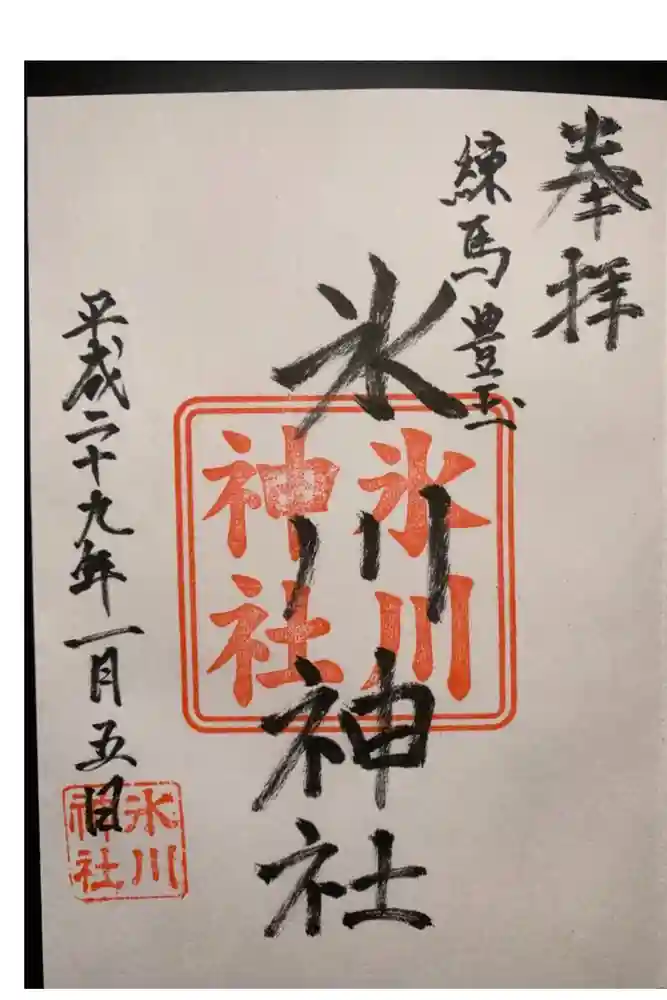 奉拝
練馬豊玉
氷川神社
氷川
神社
平成二十九年一月五日
氷川
神社